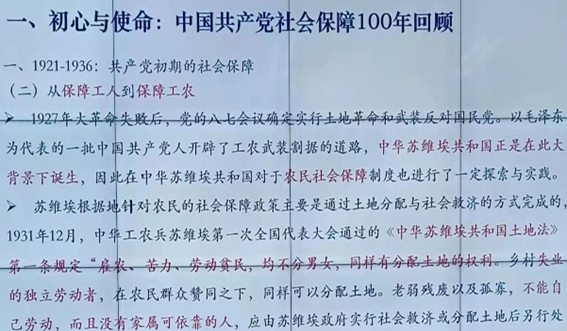 一、初心与使命：中国共产党社会保障100年回顾
一、1921-1936：共产党初期的社会保障
（二）从保障工人到保障工农
➢ 1927年大革命失败后，党的八七会议确定实行土地革命和武装反对国民党。以毛泽东
为代表的一批中国共产党人开辟了工农武装割据的道路，中华苏维埃共和国正是在此大
背景下诞生，因此在中华苏维埃共和国对于农民社会保障制度也进行了一定探索与实践。
➢ 苏维埃根据地针对农民的社会保障政策主要是通过土地分配与社会救济的方式完成的，
1931年12月，中华工农兵苏维埃第一次全国代表大会通过的《中华苏维埃共和国土地法》
第一条规定“雇农、苦力、劳动贫民，均不分男女，同样有分配土地的权利。乡村失业
的独立劳动者，在农民群众赞同之下，同样可以分配土地。老弱残废以及孤寡，不能自
己劳动，而且没有家属可依靠的人，应由苏维埃政府实行社会救济或分配土地后另行处